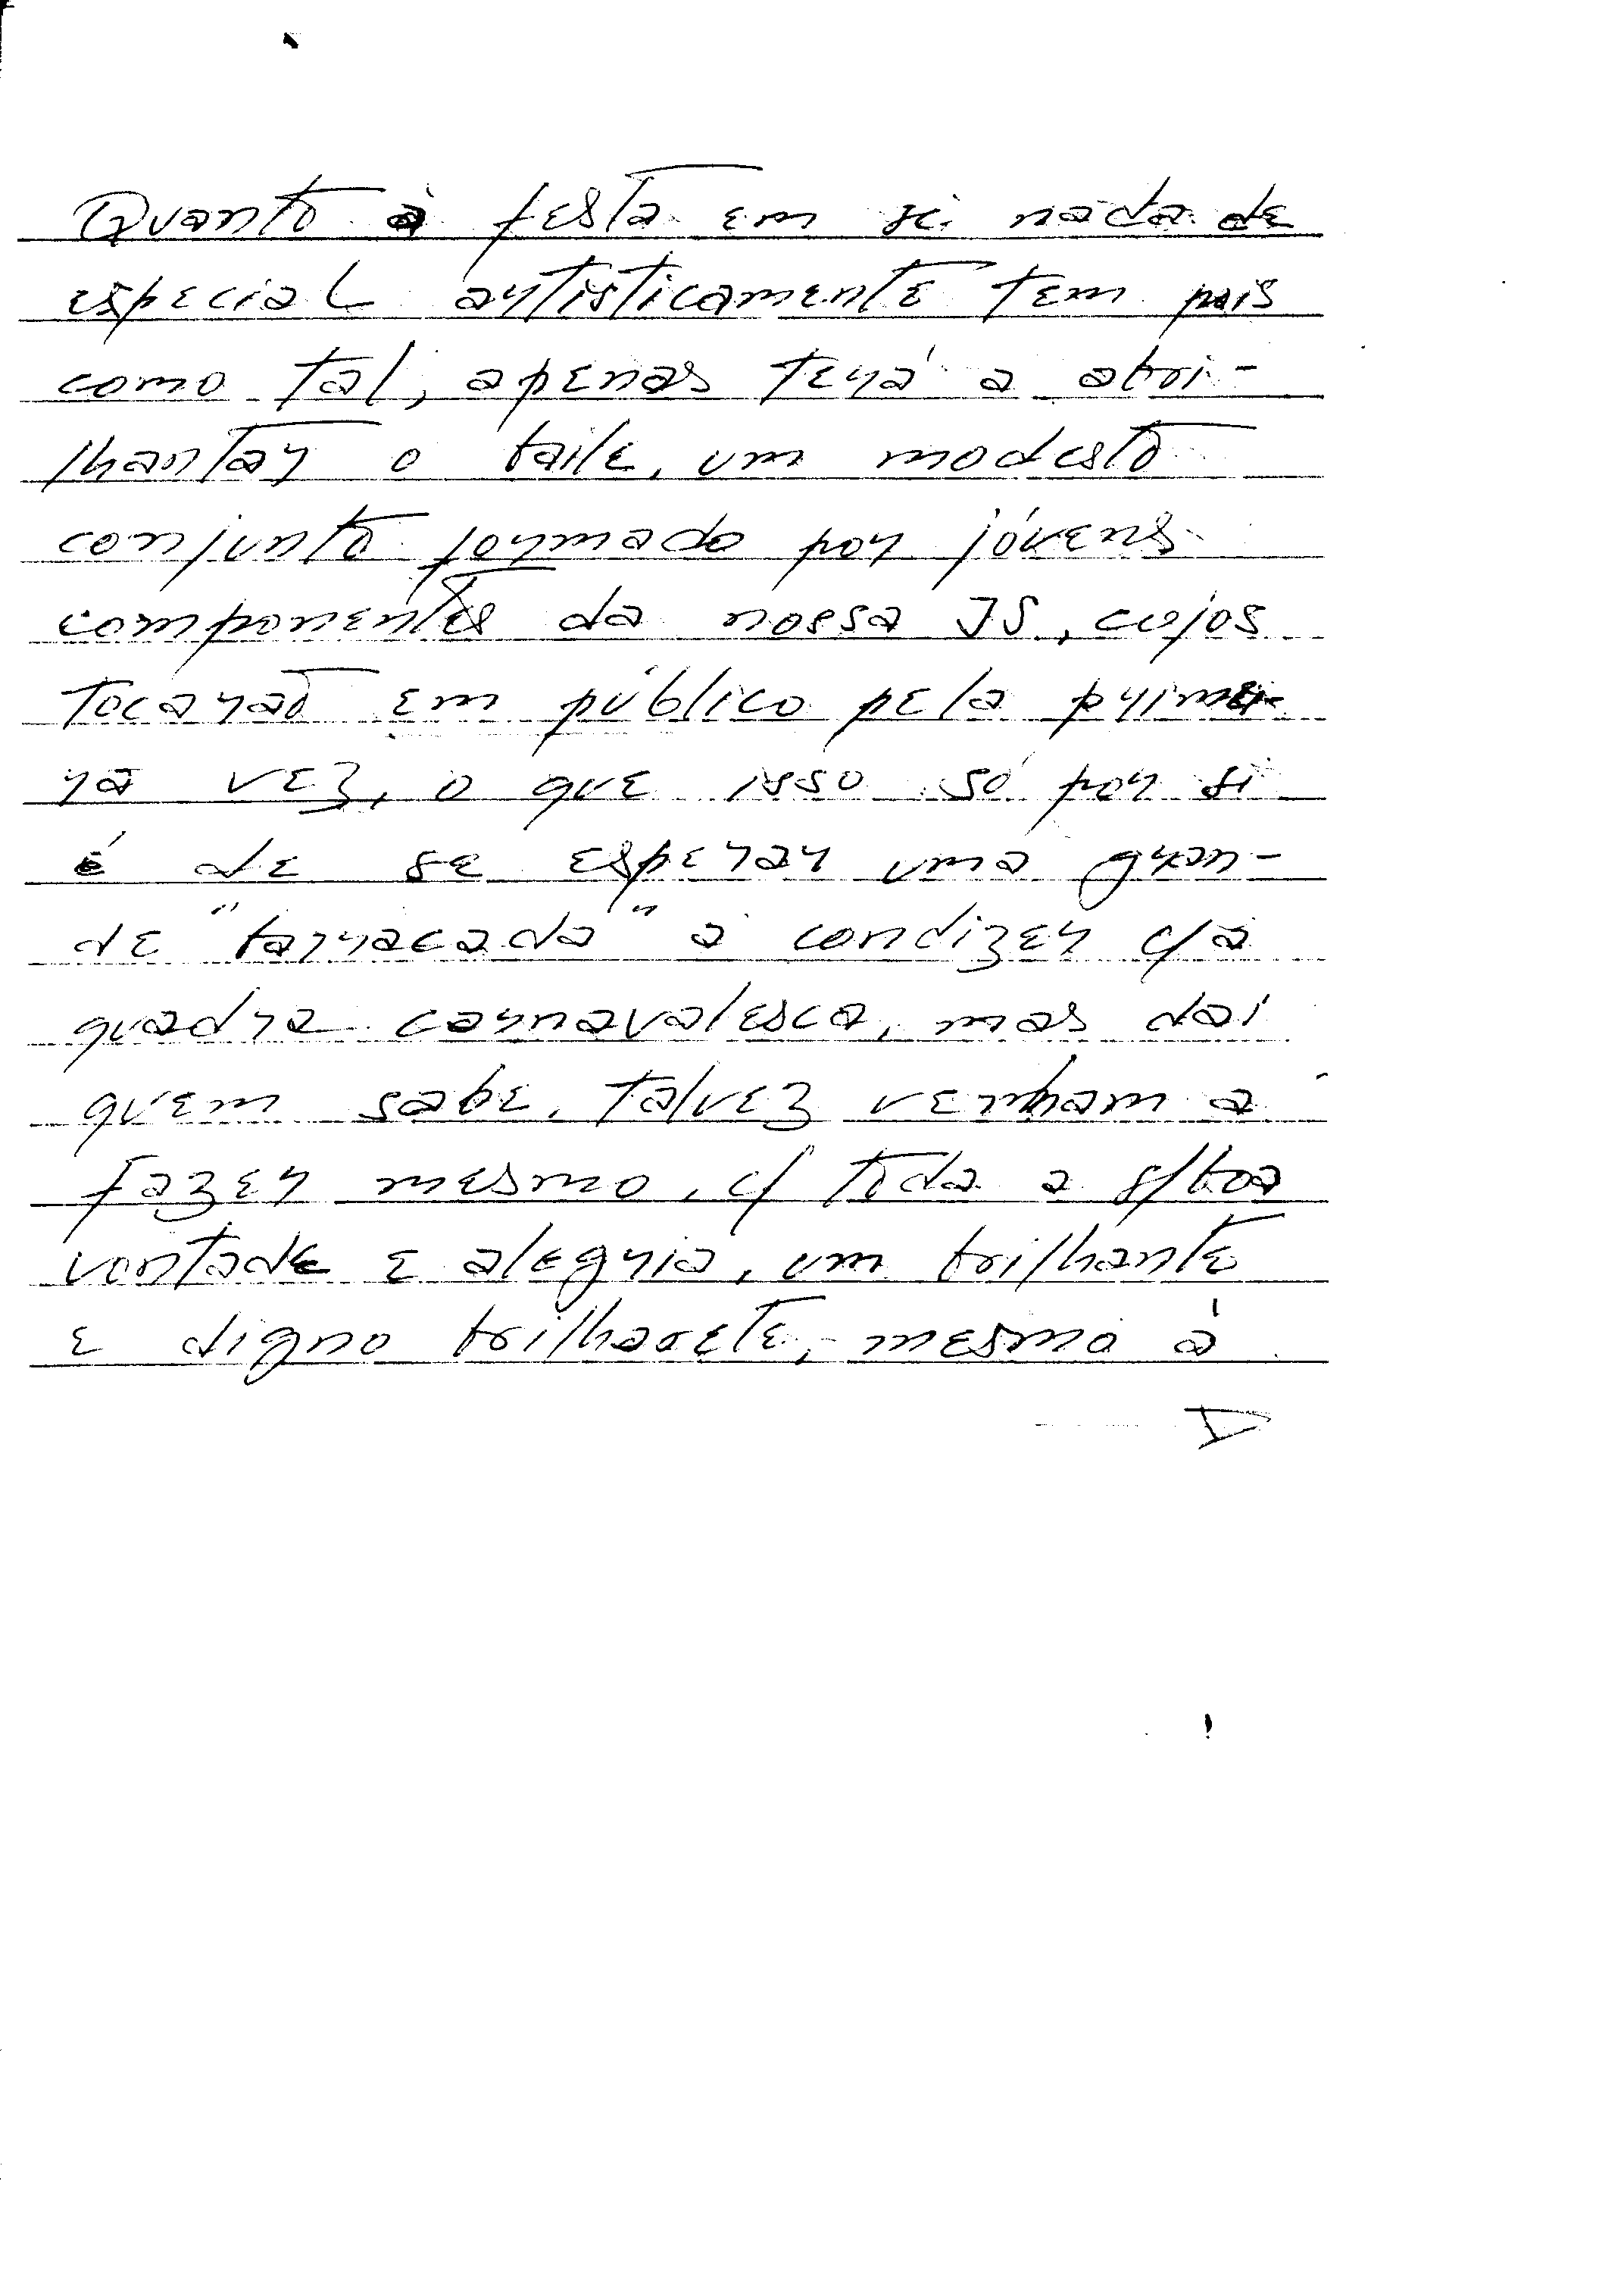 Quanto à festa em si nada de
especial artisticamente tem pois
como tal, apenas terá a abri-
lhantar o baile, um modesto
conjunto formado por jóvens
componentes da nossa JS, cujos
tocarão em público pela primei-
ra vez, o que isso só por si
é de se esperar uma gran-
de "barracada" a condizer c/a
quadra carnavalesca, mas daí
quem sabe, talvez venham a
fazer mesmo, c/ toda a s/boa
vontade e alegria, um brilhante
e digno brilharete, mesmo à